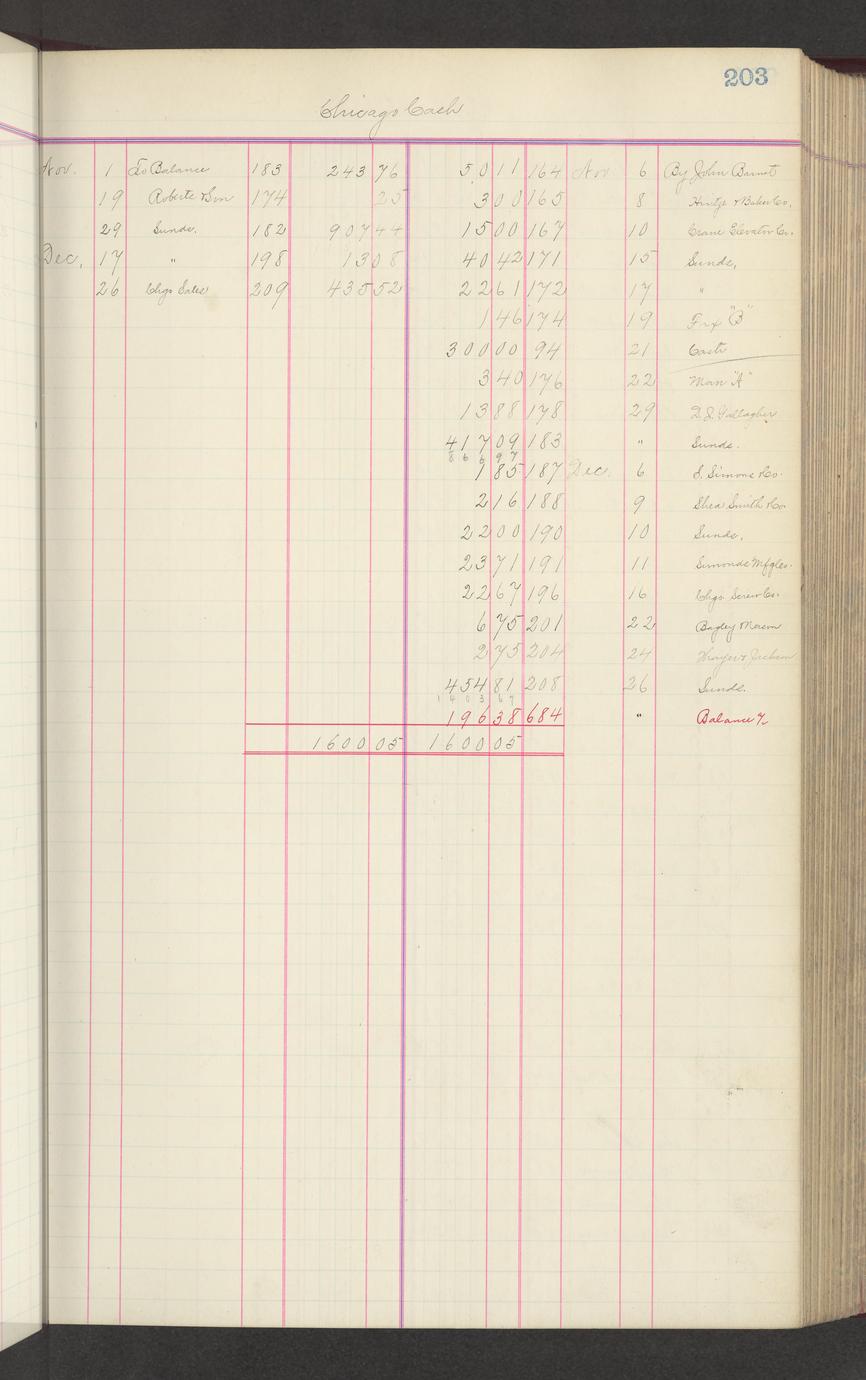 203
Chicago Cash
Nov. 1 To Balance 183 243 76 50 11 164 Nov 6 By John Burnet
19 Roberts & Son 174 25 3 00 165 8 & Baker Co.
29 Sunds. 182 907 44 15 00 167 10 Crane Elevator Co.
Dec. 17 " 198 13 08 40 42 171 15 Sunds.
26 Chgo Sales 209 435 52 22 61 172 17 "
1 46 174 19 "B"
300 00 94 21 Cash
3 40 176 22 Man "A"
13 88 178 29 Gallagher
417 09 183 " Sunds.
866 97
1 85 187 Dec. 6 S. Simons & Co.
2 16 188 9 Shea Smith & Co.
22 00 190 10 Sunds.
23 71 191 11 Simonds Mfg Co.
22 67 196 16 Chgo. Screw Co.
6 75 201 22 Bagley
2 75 204 24 Thayer & Jackson
454 81 208 26 Sunds.
1403 67
196 38 684 " Balance
1600 05 1600 05